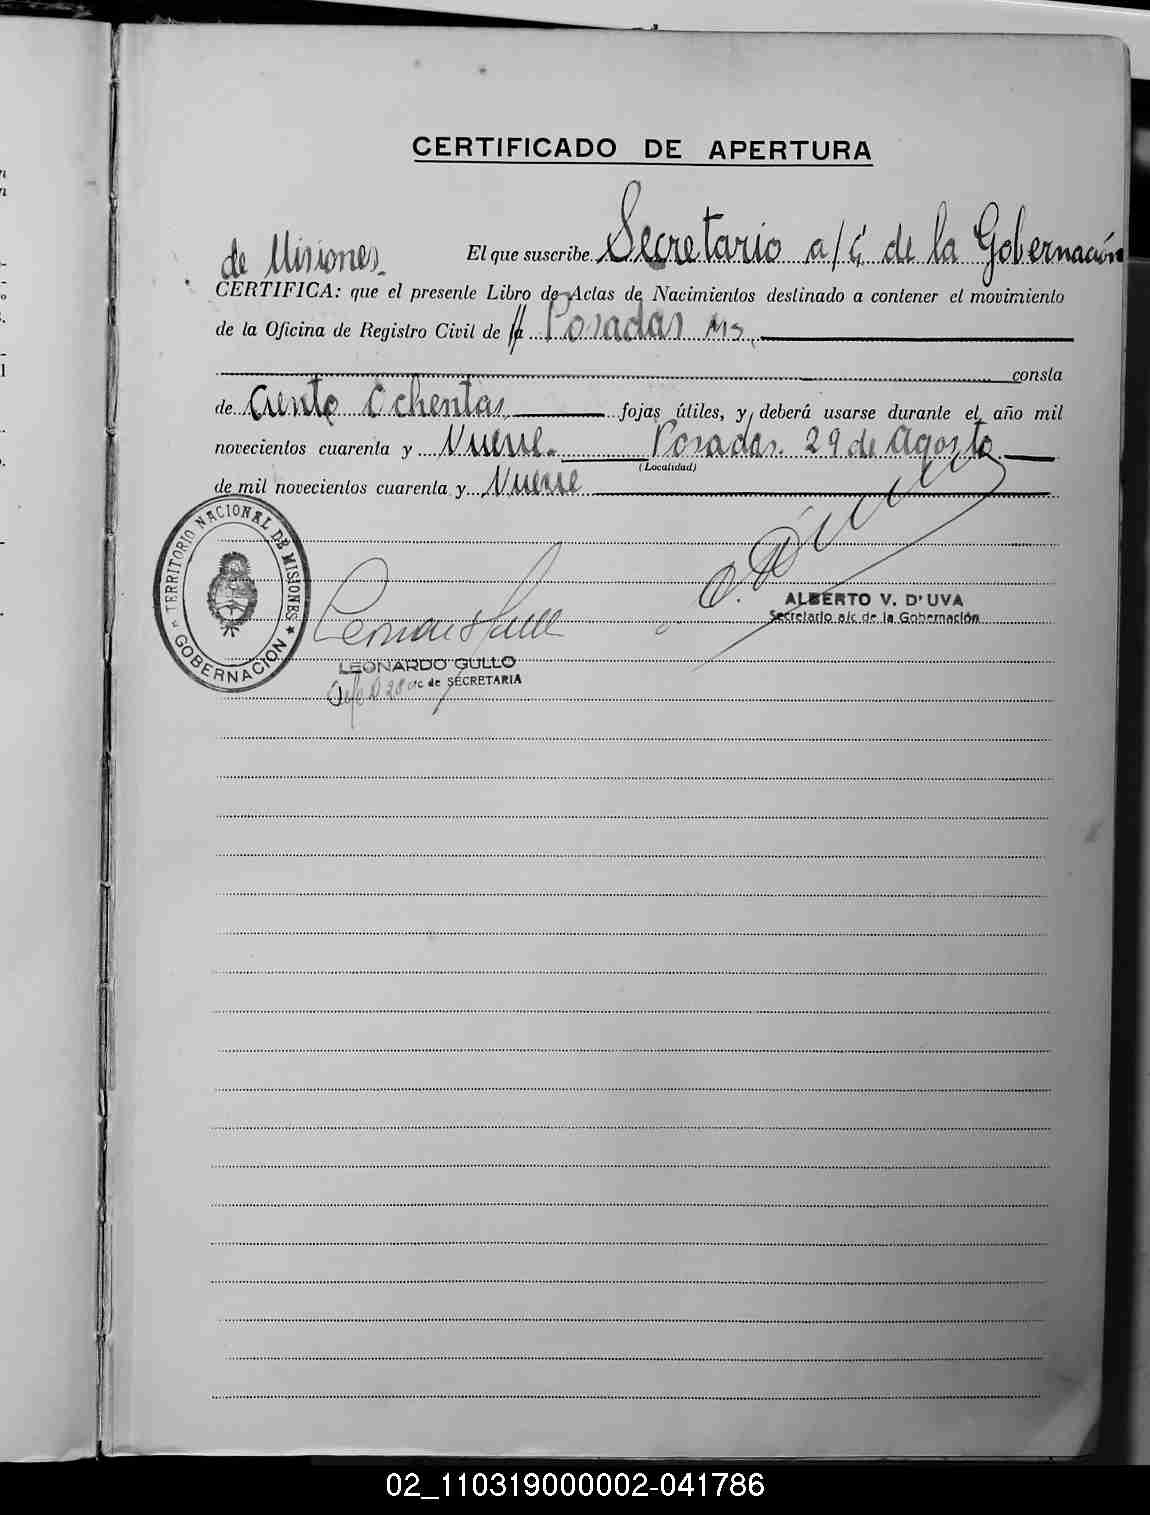 CERTIFICADO DE APERTURA
El que suscribe Secretario a/c de la Gobernación
de Misiones
CERTIFICA: que el presente Libro de Actas de Nacimientos destinado a contener el movimiento
de la Oficina de Registro Civil de Posadas Ms.
consta
de Ciento Ochentas fojas útiles, y deberá usarse durante el año mil
novecientos cuarenta y Nueve. Posadas. 29 de Agosto
(Localidad)
de mil novecientos cuarenta y Nueve
TERRITORIO NACIONAL DE MISIONES
GOBERNACION
ALBERTO V. D'UVA
Secretario a/c de la Gobernación
LEONARDO GULLO
de SECRETARIA
02_110319000002-041786